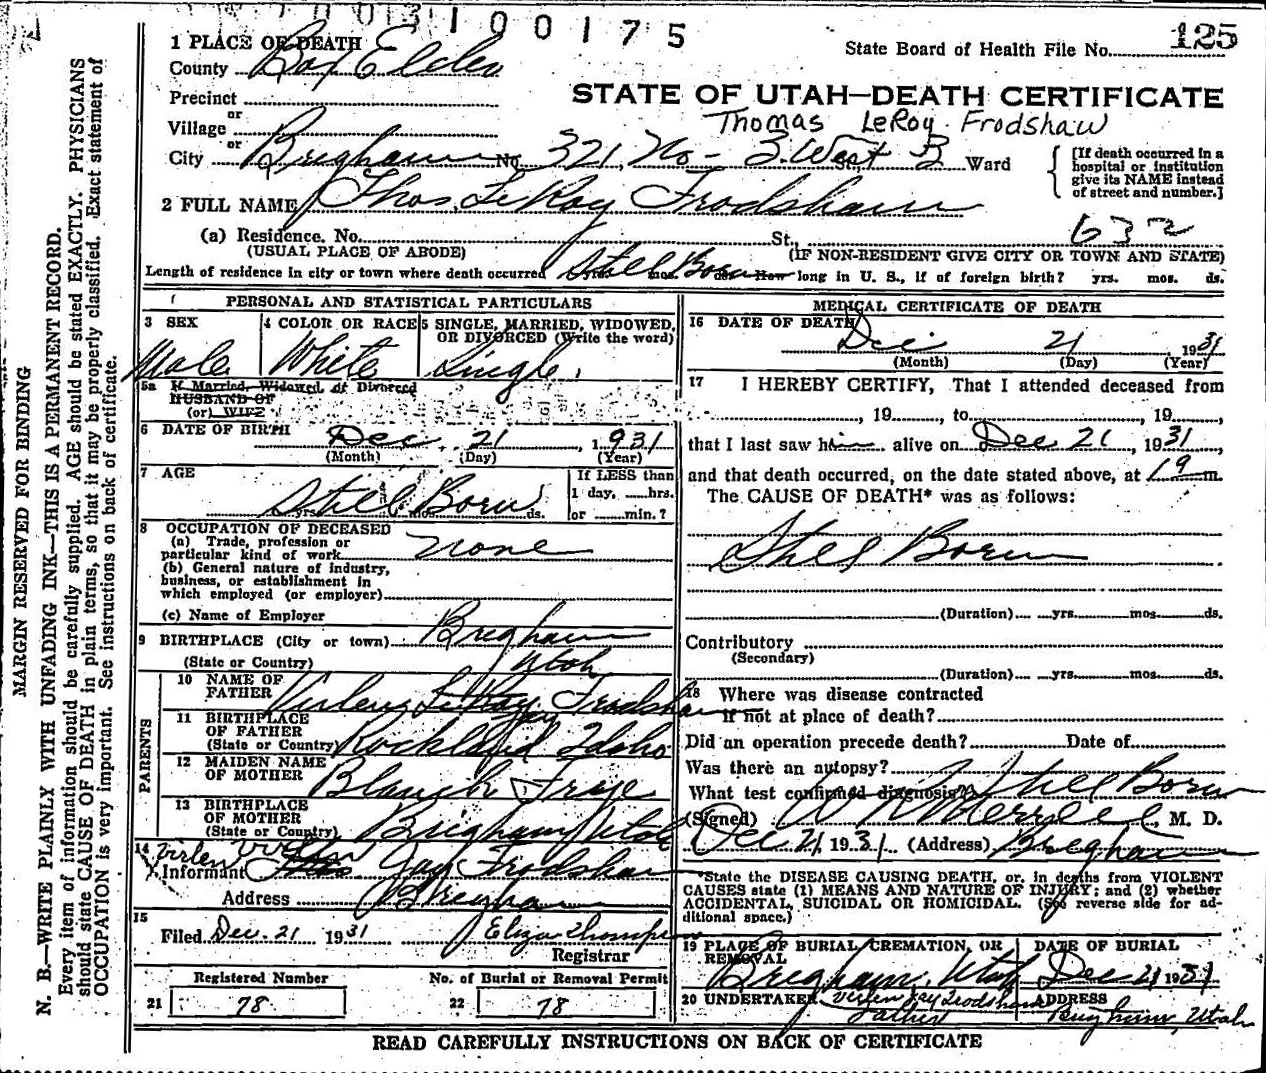 100175
125
1 PLACE OF DEATH
State Board of Health File No.
County Box Elder
Precinct
STATE OF UTAH—DEATH CERTIFICATE
or
Village
Thomas LeRoy Frodshaw
or
City Brigham No. 321 No - 3 West St., 3 Ward
[If death occurred in a hospital or institution give its NAME instead of street and number.]
2 FULL NAME Thos. LeRoy Frodsham
632
(a) Residence. No. St.,
(USUAL PLACE OF ABODE) (IF NON-RESIDENT GIVE CITY OR TOWN AND STATE)
Length of residence in city or town where death occurred Still Born yrs. mos. ds. How long in U. S., if of foreign birth? yrs. mos. ds.
PERSONAL AND STATISTICAL PARTICULARS
3 SEX
Male
4 COLOR OR RACE
White
5 SINGLE, MARRIED, WIDOWED, OR DIVORCED (Write the word)
Single.
5a If Married, Widowed, or Divorced
HUSBAND OF
(or) WIFE
6 DATE OF BIRTH Dec. 21, 1931
(Month) (Day) (Year)
7 AGE
Still Born
yrs. mos. ds.
If LESS than
1 day, hrs.
or min.?
8 OCCUPATION OF DECEASED
(a) Trade, profession or
particular kind of work none
(b) General nature of industry,
business, or establishment in
which employed (or employer)
(c) Name of Employer
9 BIRTHPLACE (City or town) Brigham
(State or Country) Utah
PARENTS
10 NAME OF
FATHER Verlen LeRoy Jay Frodsham
11 BIRTHPLACE
OF FATHER
(State or Country) Rockland Idaho
12 MAIDEN NAME
OF MOTHER Blanch Frye
13 BIRTHPLACE
OF MOTHER
(State or Country) Brigham, Utah
14 Verlen
Informant Thos Jay Frodsham
Address Brigham
15
Filed Dec. 21 1931 Eliza Thompson
Registrar
Registered Number
21 78
No. of Burial or Removal Permit
22 78
MEDICAL CERTIFICATE OF DEATH
16 DATE OF DEATH Dec 21 1931
(Month) (Day) (Year)
17 I HEREBY CERTIFY, That I attended deceased from
, 19 , to , 19 ,
that I last saw him alive on Dec 21, 1931
and that death occurred, on the date stated above, at m.
The CAUSE OF DEATH* was as follows:
Still Born
(Duration) yrs. mos. ds.
Contributory
(Secondary)
(Duration) yrs. mos. ds.
18 Where was disease contracted
If not at place of death?
Did an operation precede death? Date of
Was there an autopsy?
What test confirmed diagnosis? Still Born
(Signed) W R Merrell, M. D.
Dec 21 1931 (Address) Brigham
*State the DISEASE CAUSING DEATH, or, in deaths from VIOLENT
CAUSES state (1) MEANS AND NATURE OF INJURY; and (2) whether
ACCIDENTAL, SUICIDAL OR HOMICIDAL. (See reverse side for ad-
ditional space.)
19 PLACE OF BURIAL, CREMATION, OR
REMOVAL
Brigham, Utah
DATE OF BURIAL
Dec 21 1931
20 UNDERTAKER Verlen Jay Frodsham
Father
ADDRESS
Brigham, Utah
READ CAREFULLY INSTRUCTIONS ON BACK OF CERTIFICATE
MARGIN RESERVED FOR BINDING
N. B.—WRITE PLAINLY WITH UNFADING INK—THIS IS A PERMANENT RECORD.
Every item of information should be carefully supplied. AGE should be stated EXACTLY. PHYSICIANS
should state CAUSE OF DEATH in plain terms, so that it may be properly classified. Exact statement of
OCCUPATION is very important. See instructions on back of certificate.